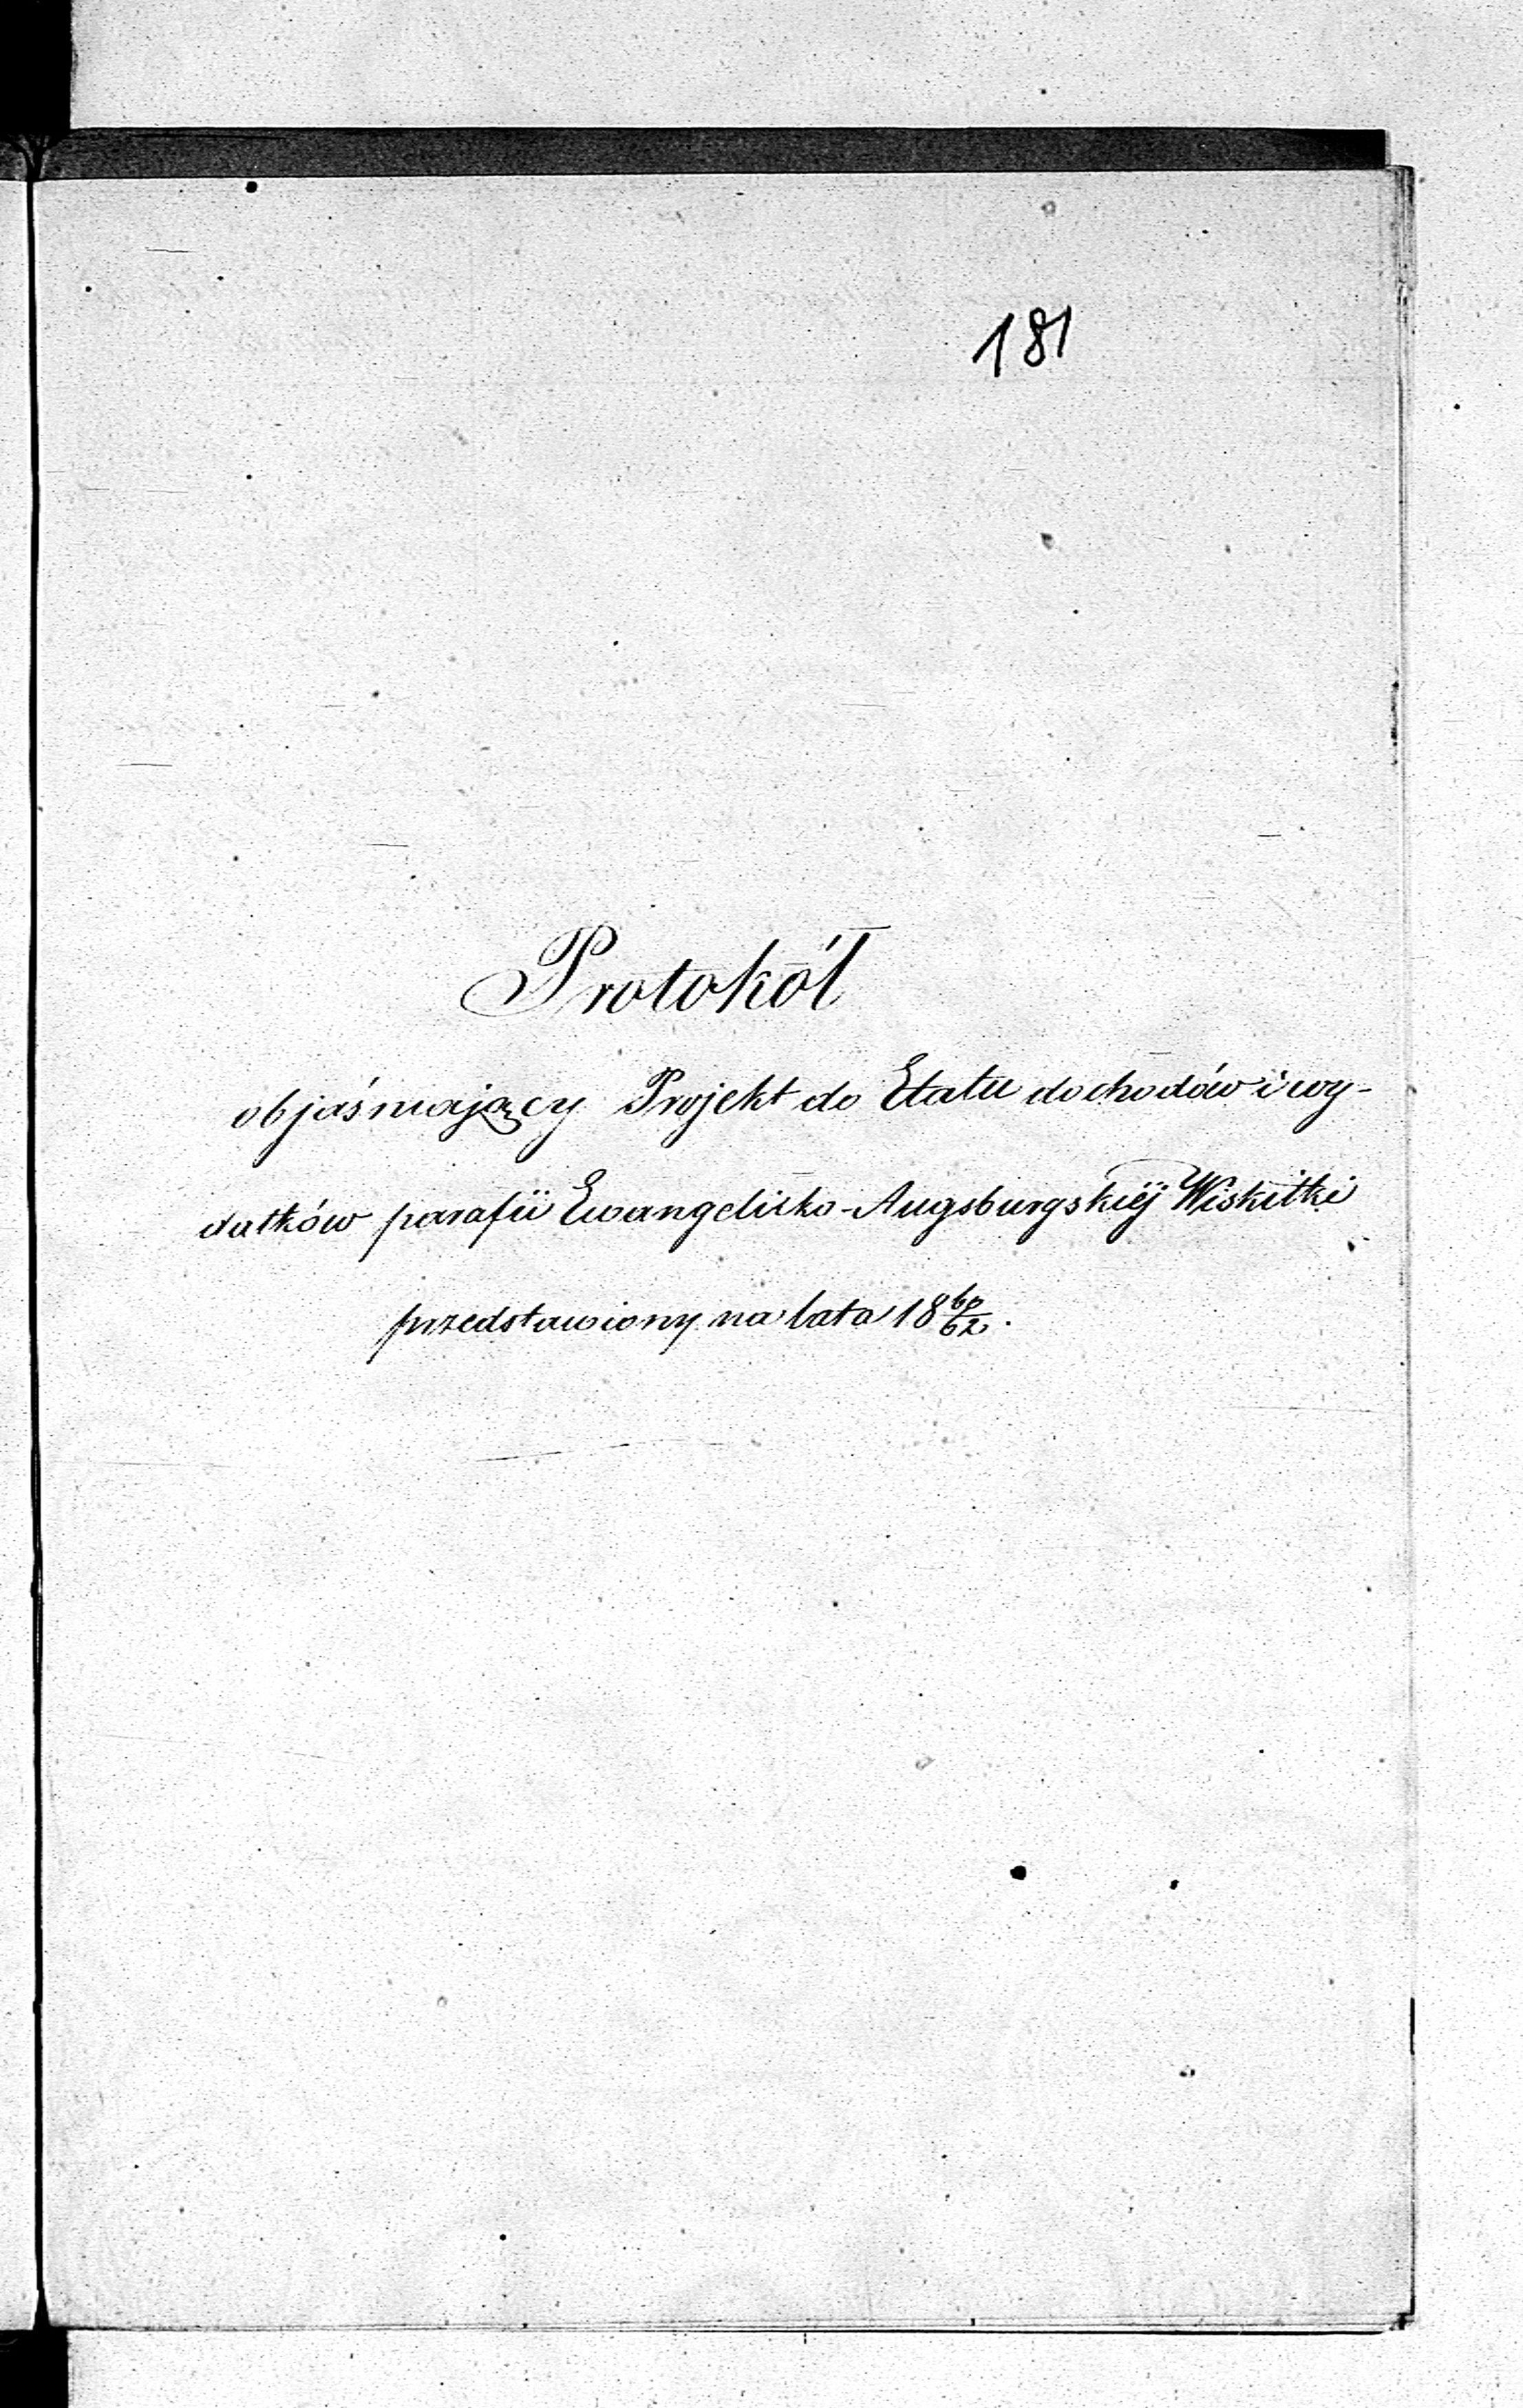 181
Protokół
objaśniający Projekt do Etatu dochodów i wy-
datków parafii Ewangelicko-Augsburgskiéj Wiskitki
przedstawiony na lata 18 60/62.